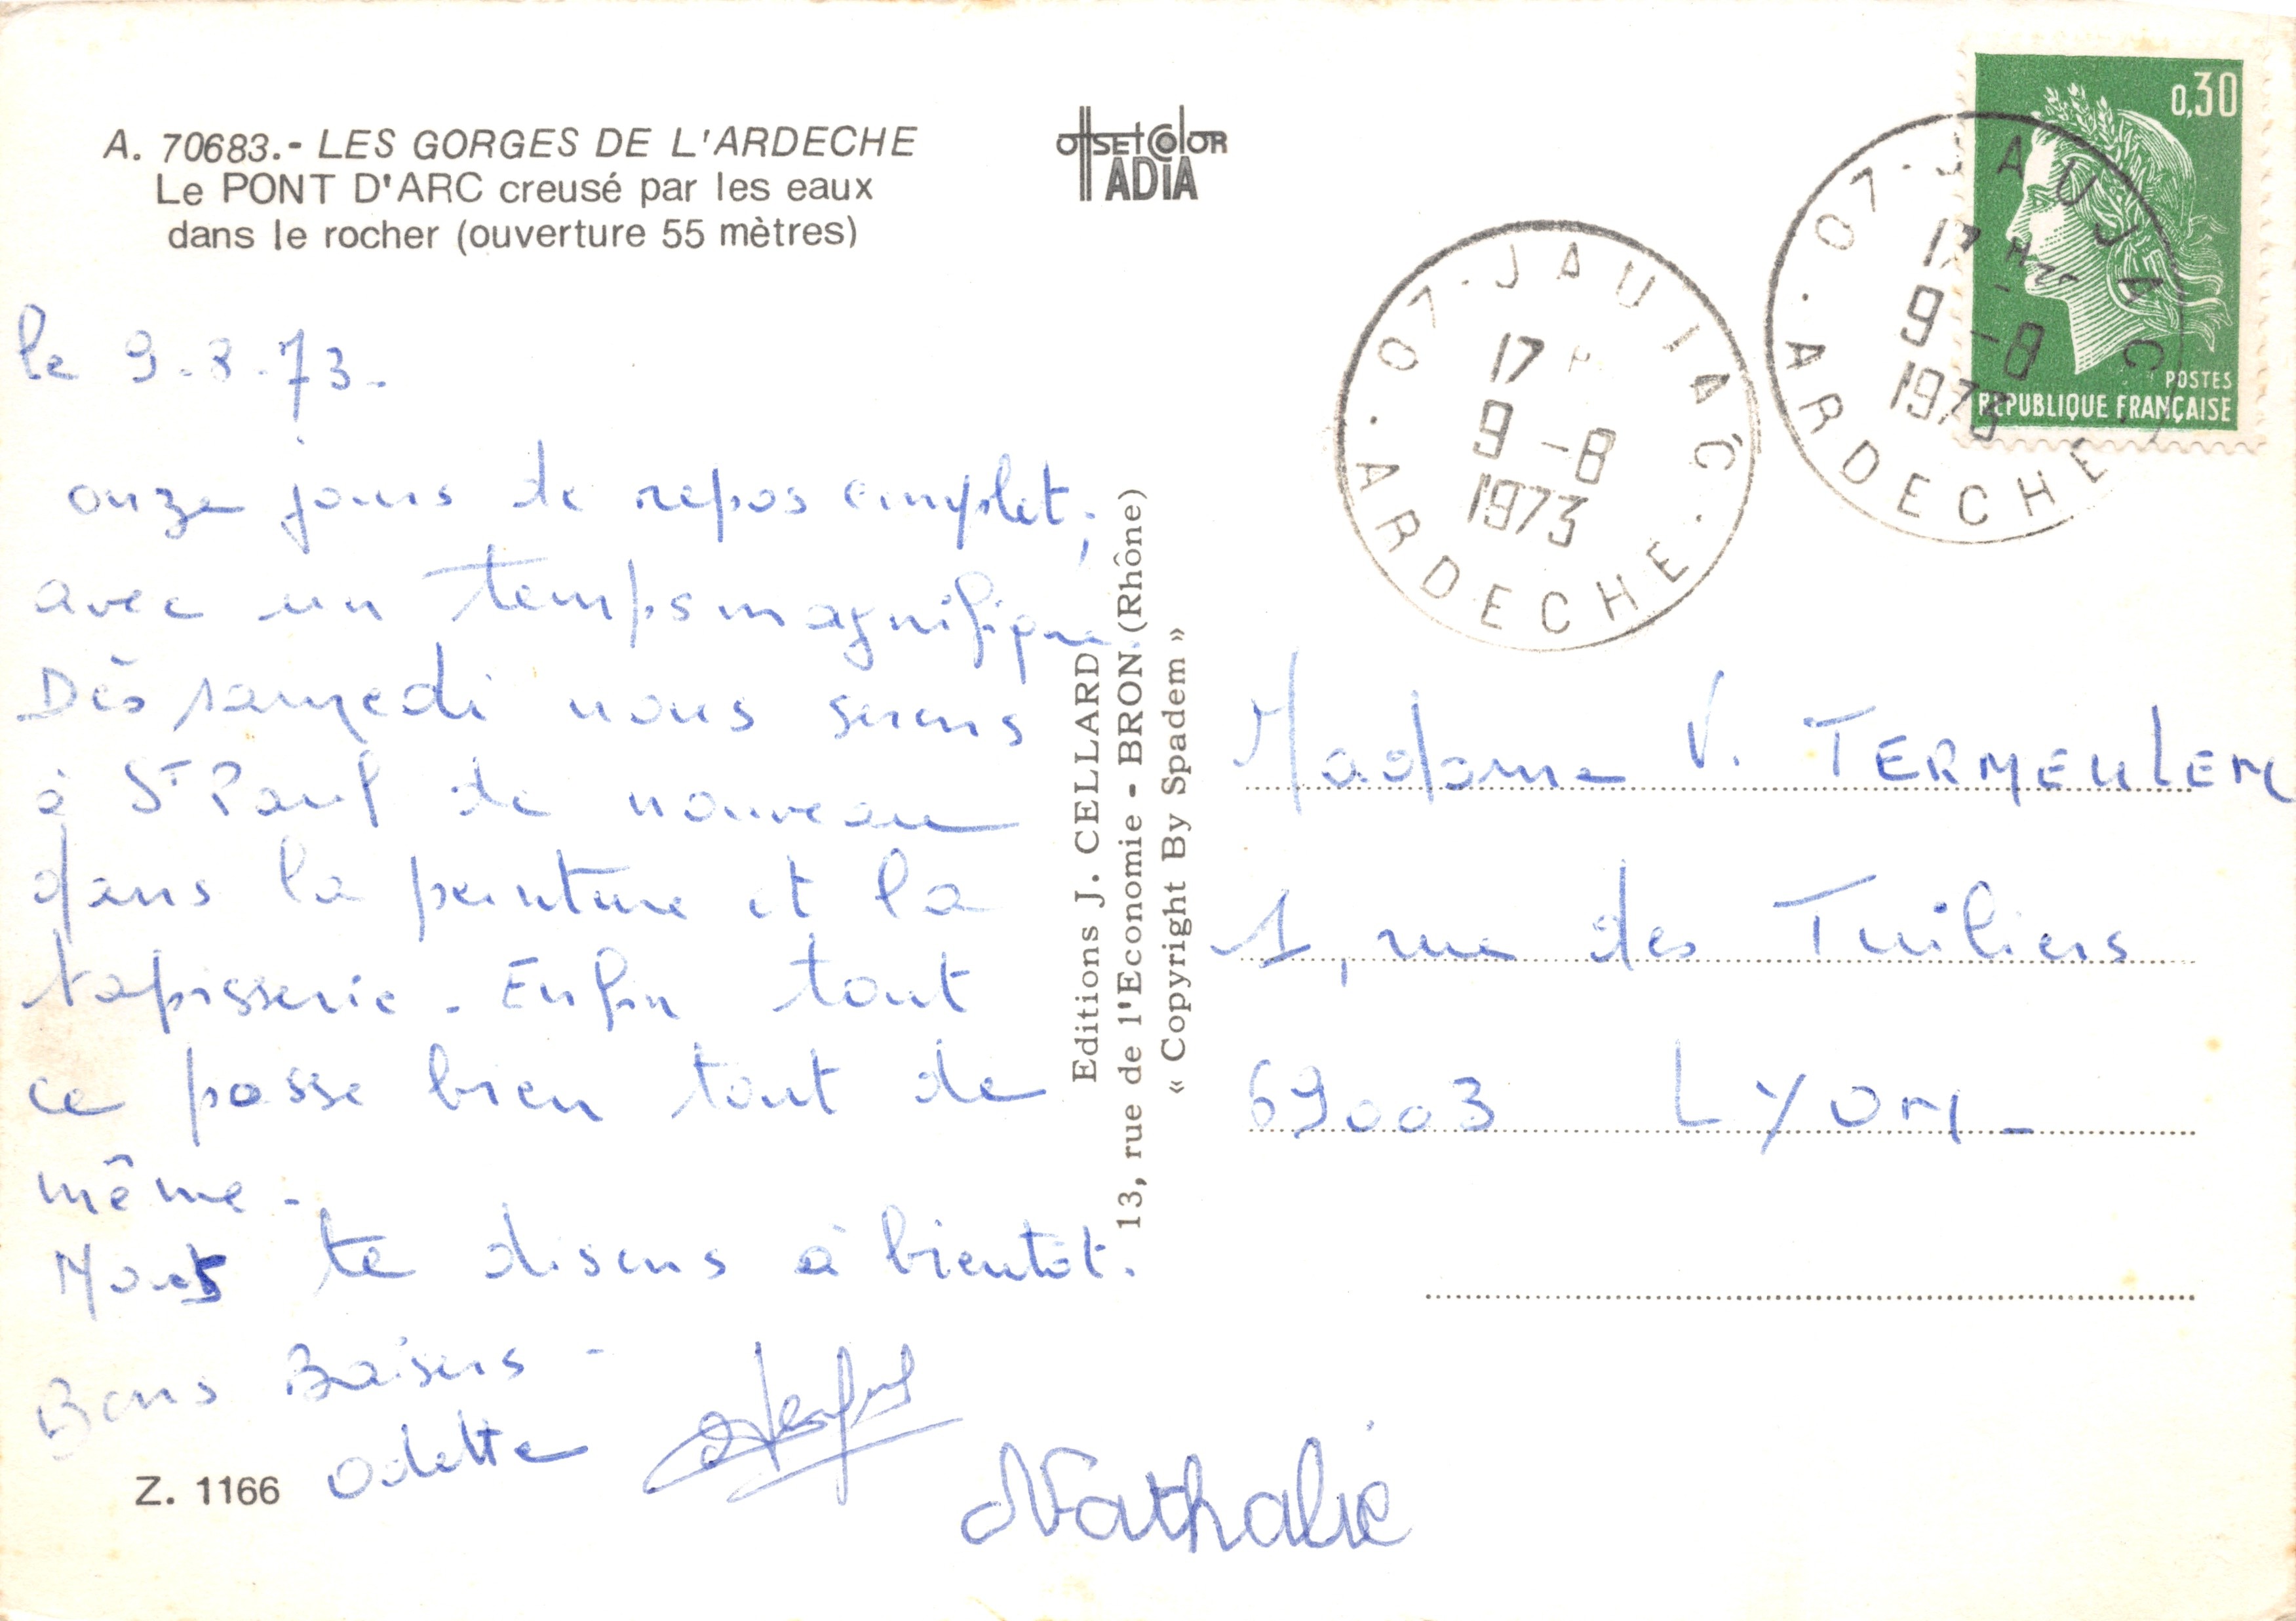 A. 70683.- LES GORGES DE L'ARDECHE
Le PONT D'ARC creusé par les eaux
dans le rocher (ouverture 55 mètres)
offsetcolor
ADIA
le 9.8.73.
onze jours de repos complet,
avec un temps magnifique.
Dès samedi nous serons
à St Paul de nouveau
dans la peinture et la
tapisserie. Enfin tout
ce passe bien tout de
même.
Nous te disons à bientôt.
Bons Baisers -
Odette
Nathalie
Z. 1166
Editions J. CELLARD
13, rue de l'Economie - BRON (Rhône)
« Copyright By Spadem »
07-JAUJAC
17 H
9 -8
1973
ARDECHE
07-JAUJAC
17 H
9 -8
1973
ARDECHE
0,30
POSTES
REPUBLIQUE FRANÇAISE
Madame V. TERMEULEN
1, rue des Tuiliers
69003 LYON -